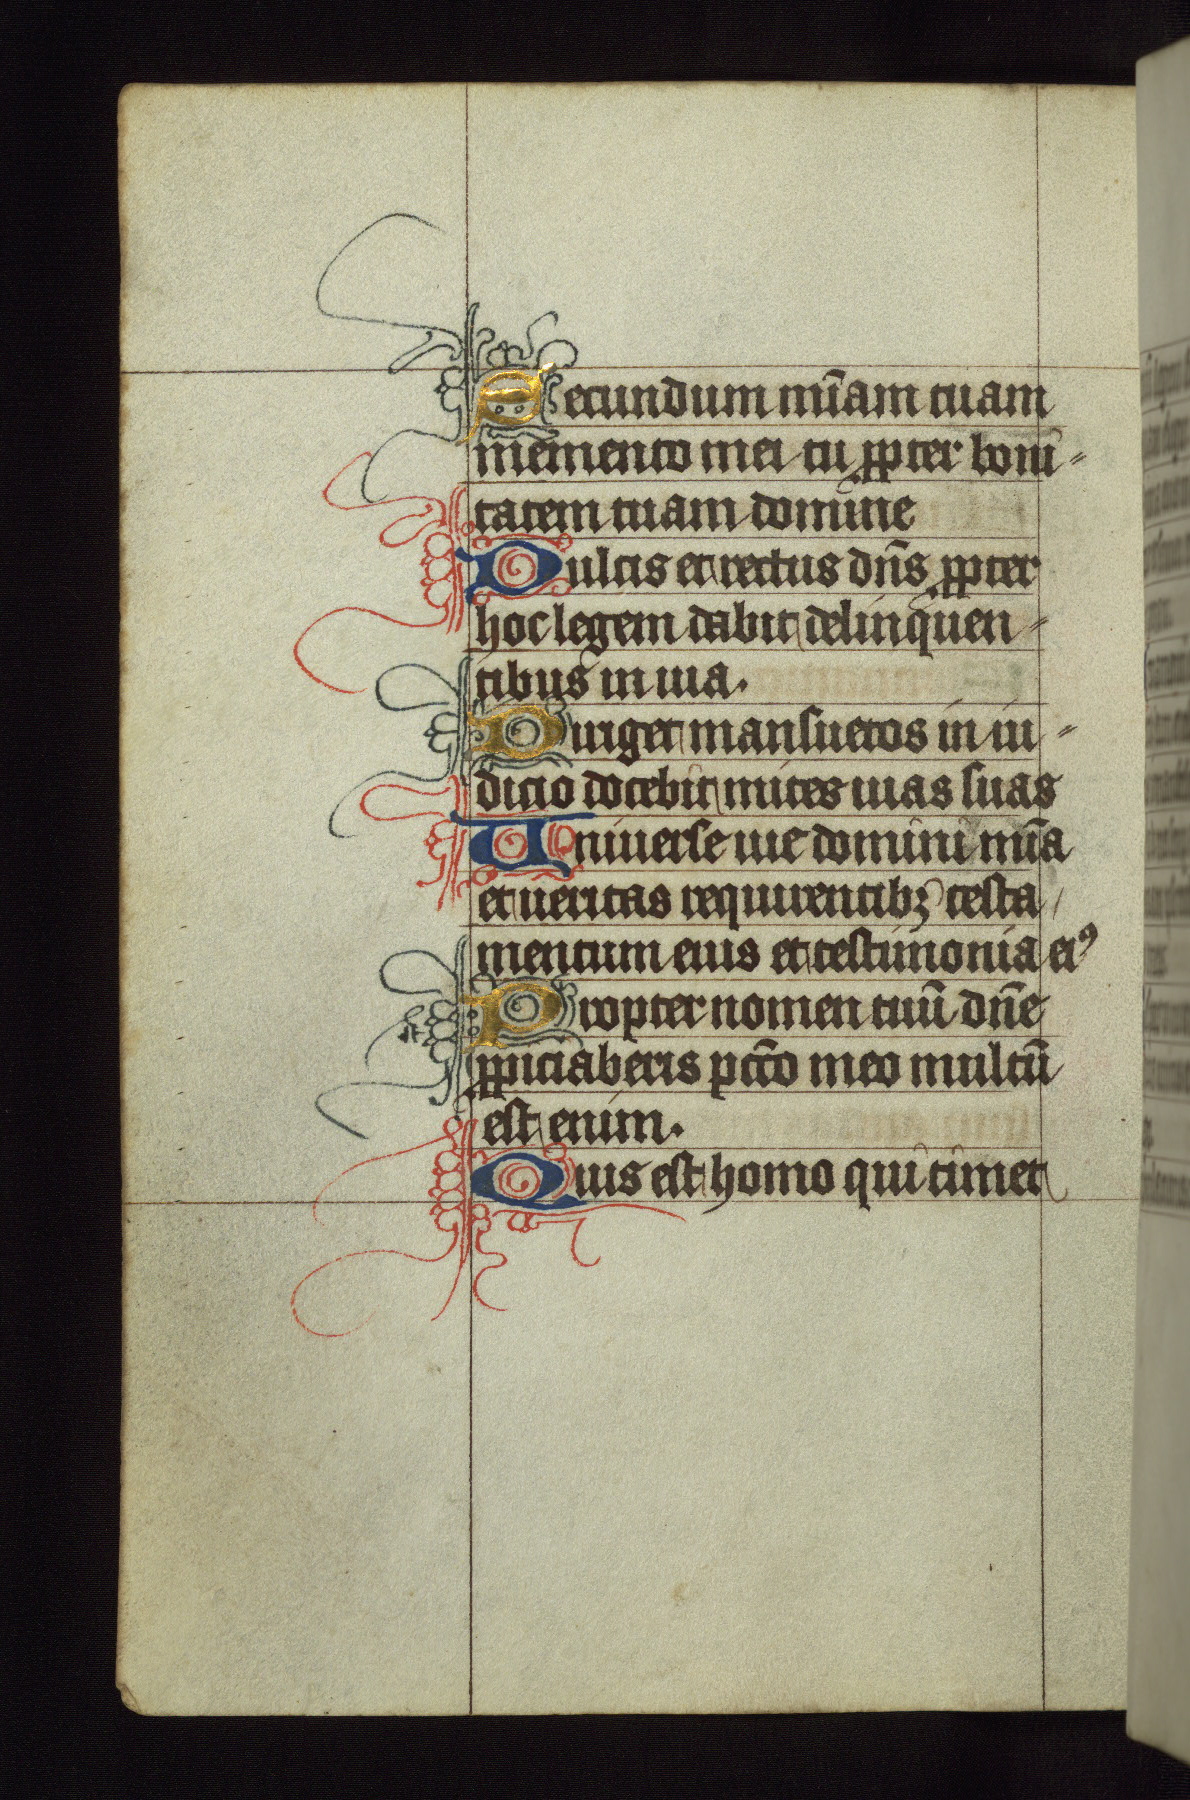 Secundum mīam tuam
memento mei tu ꝓpter boni⸗
tatem tuam domine
Dulcis et rectus dn̄s ꝓpter
hoc legem dabit delinquen⸗
tibus in uia.
Diriget mansuetos in iu⸗
dicio docebit mites uias suas
Uniuerse uie domini mīa
et ueritas requirentibꝫ testa/
mentum eius et testimonia eiꝰ
Propter nomen tuū dn̄e
ꝓpiciaberis pctō meo multū
est enim.
Quis est homo qui timet